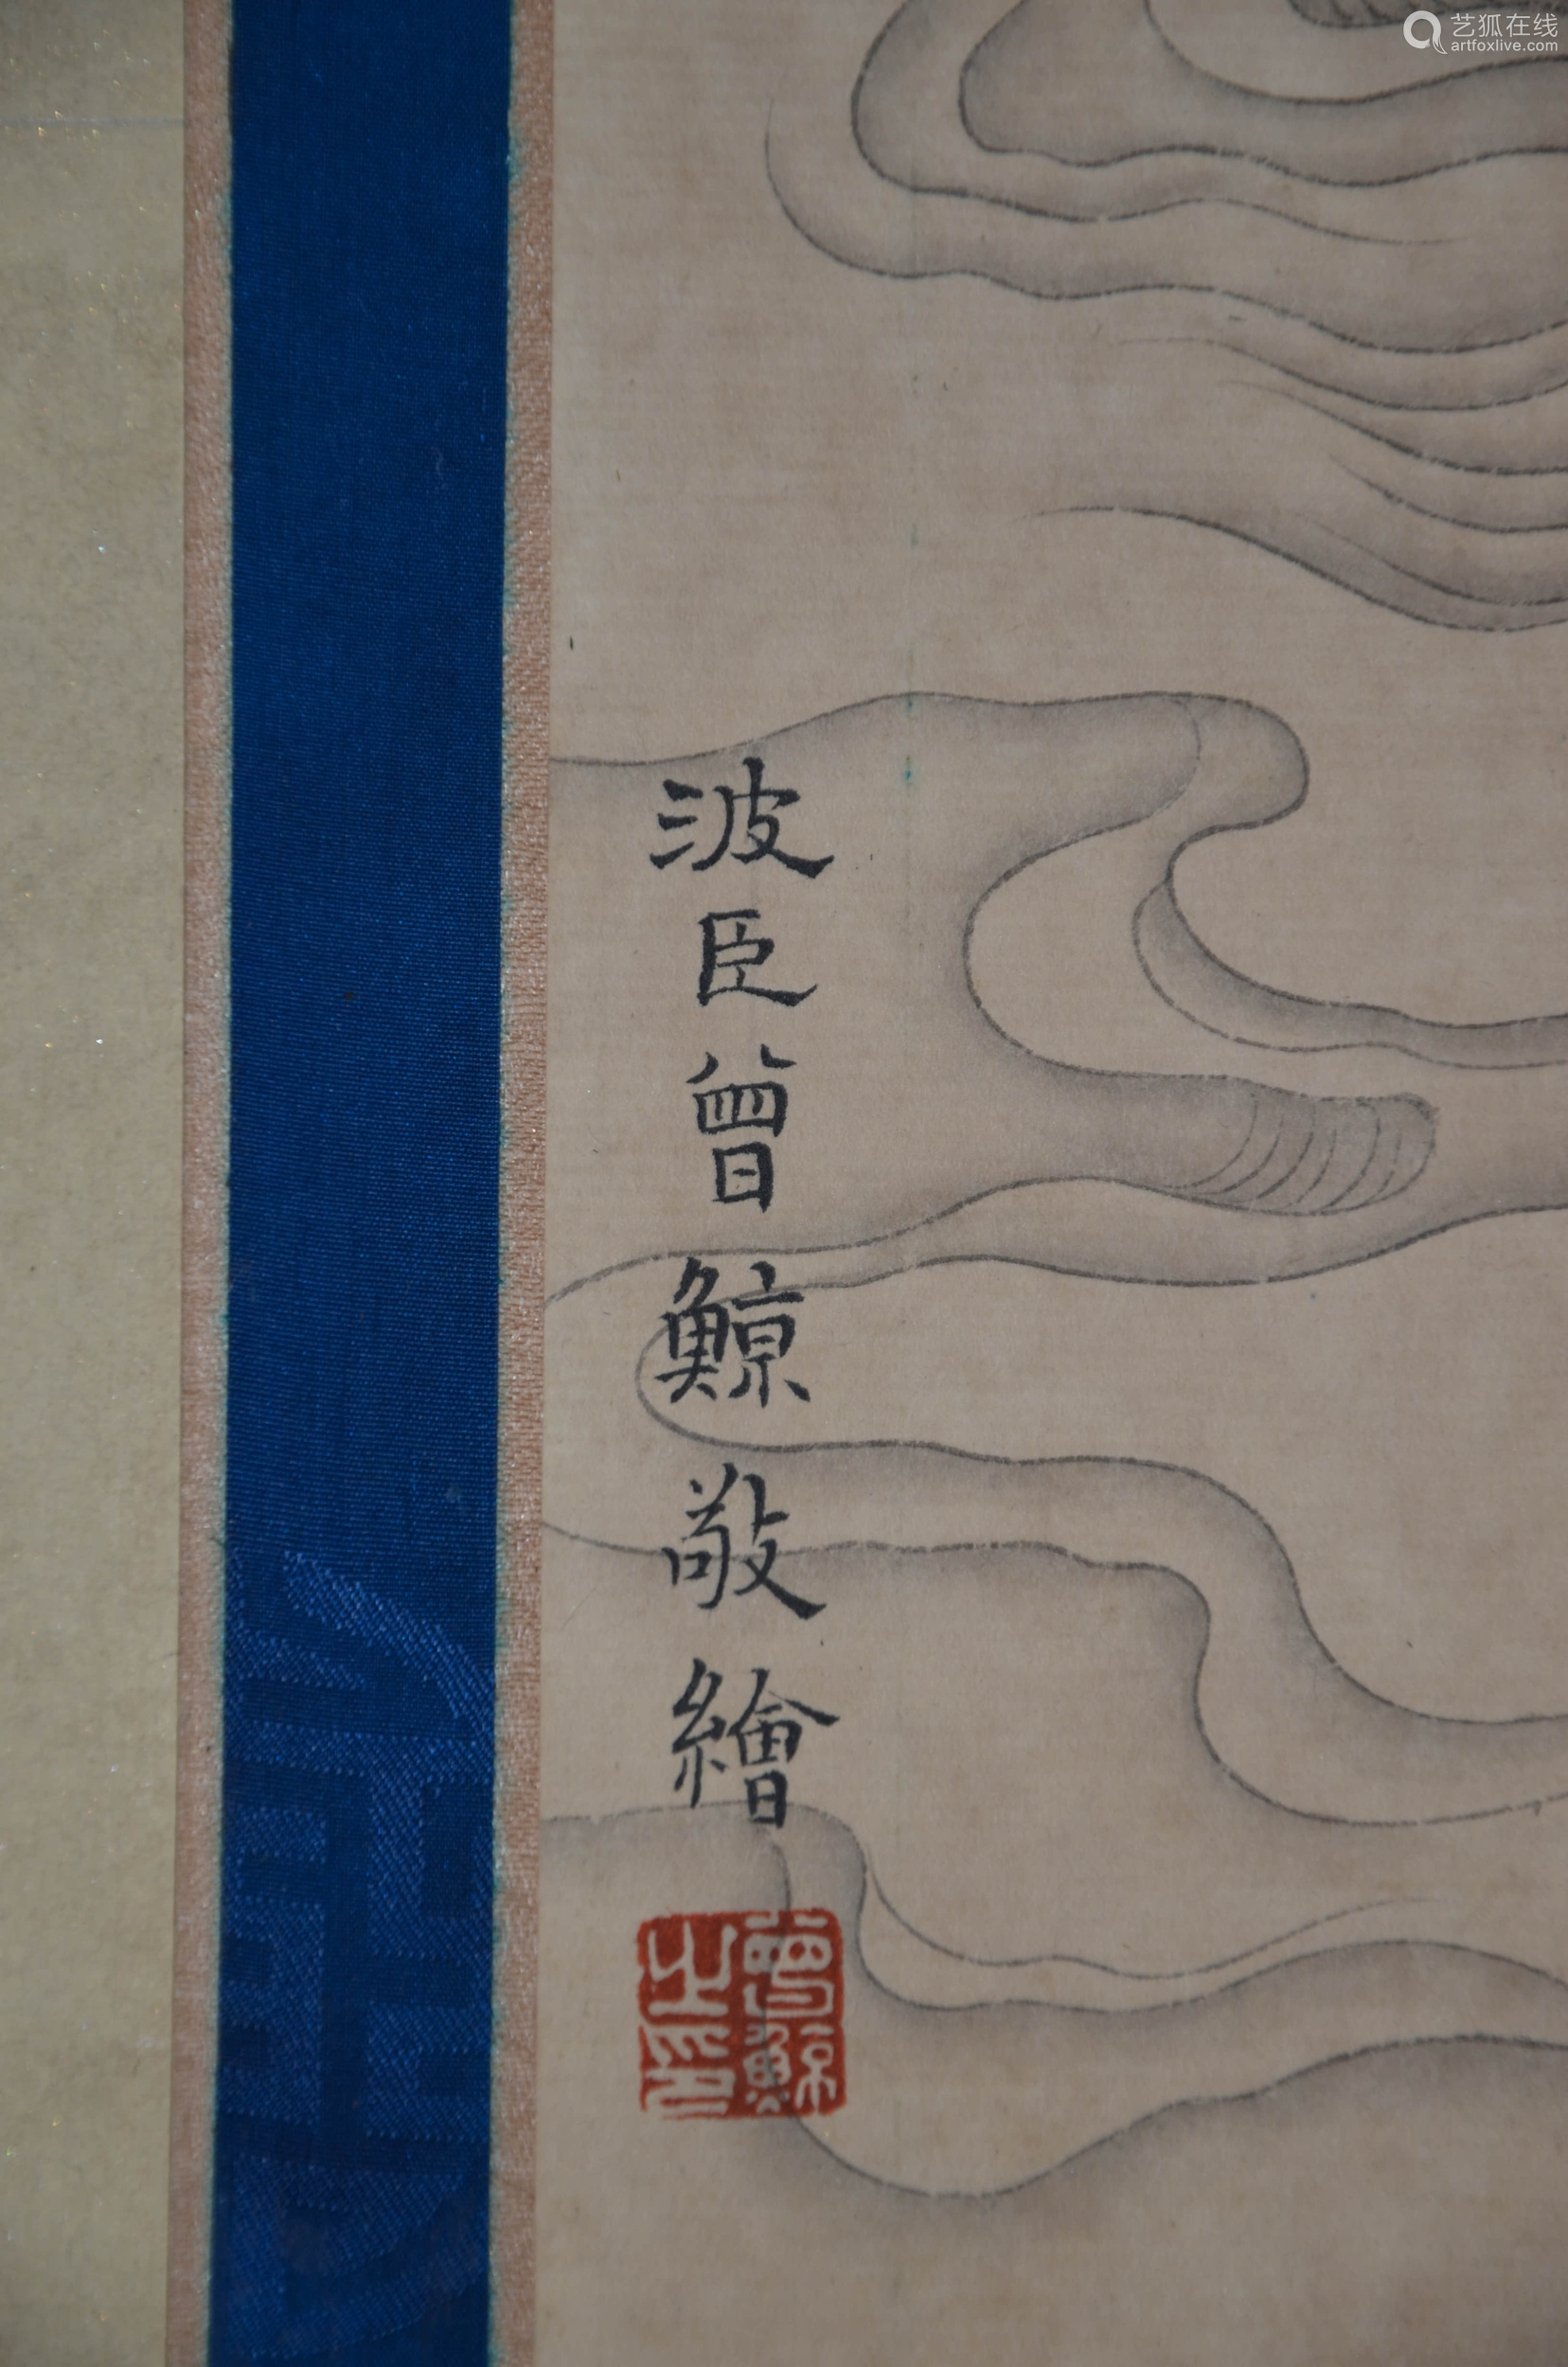 艺狐在线
artfoxlive.com
波臣曾鯨敬繪
曾鯨
之印